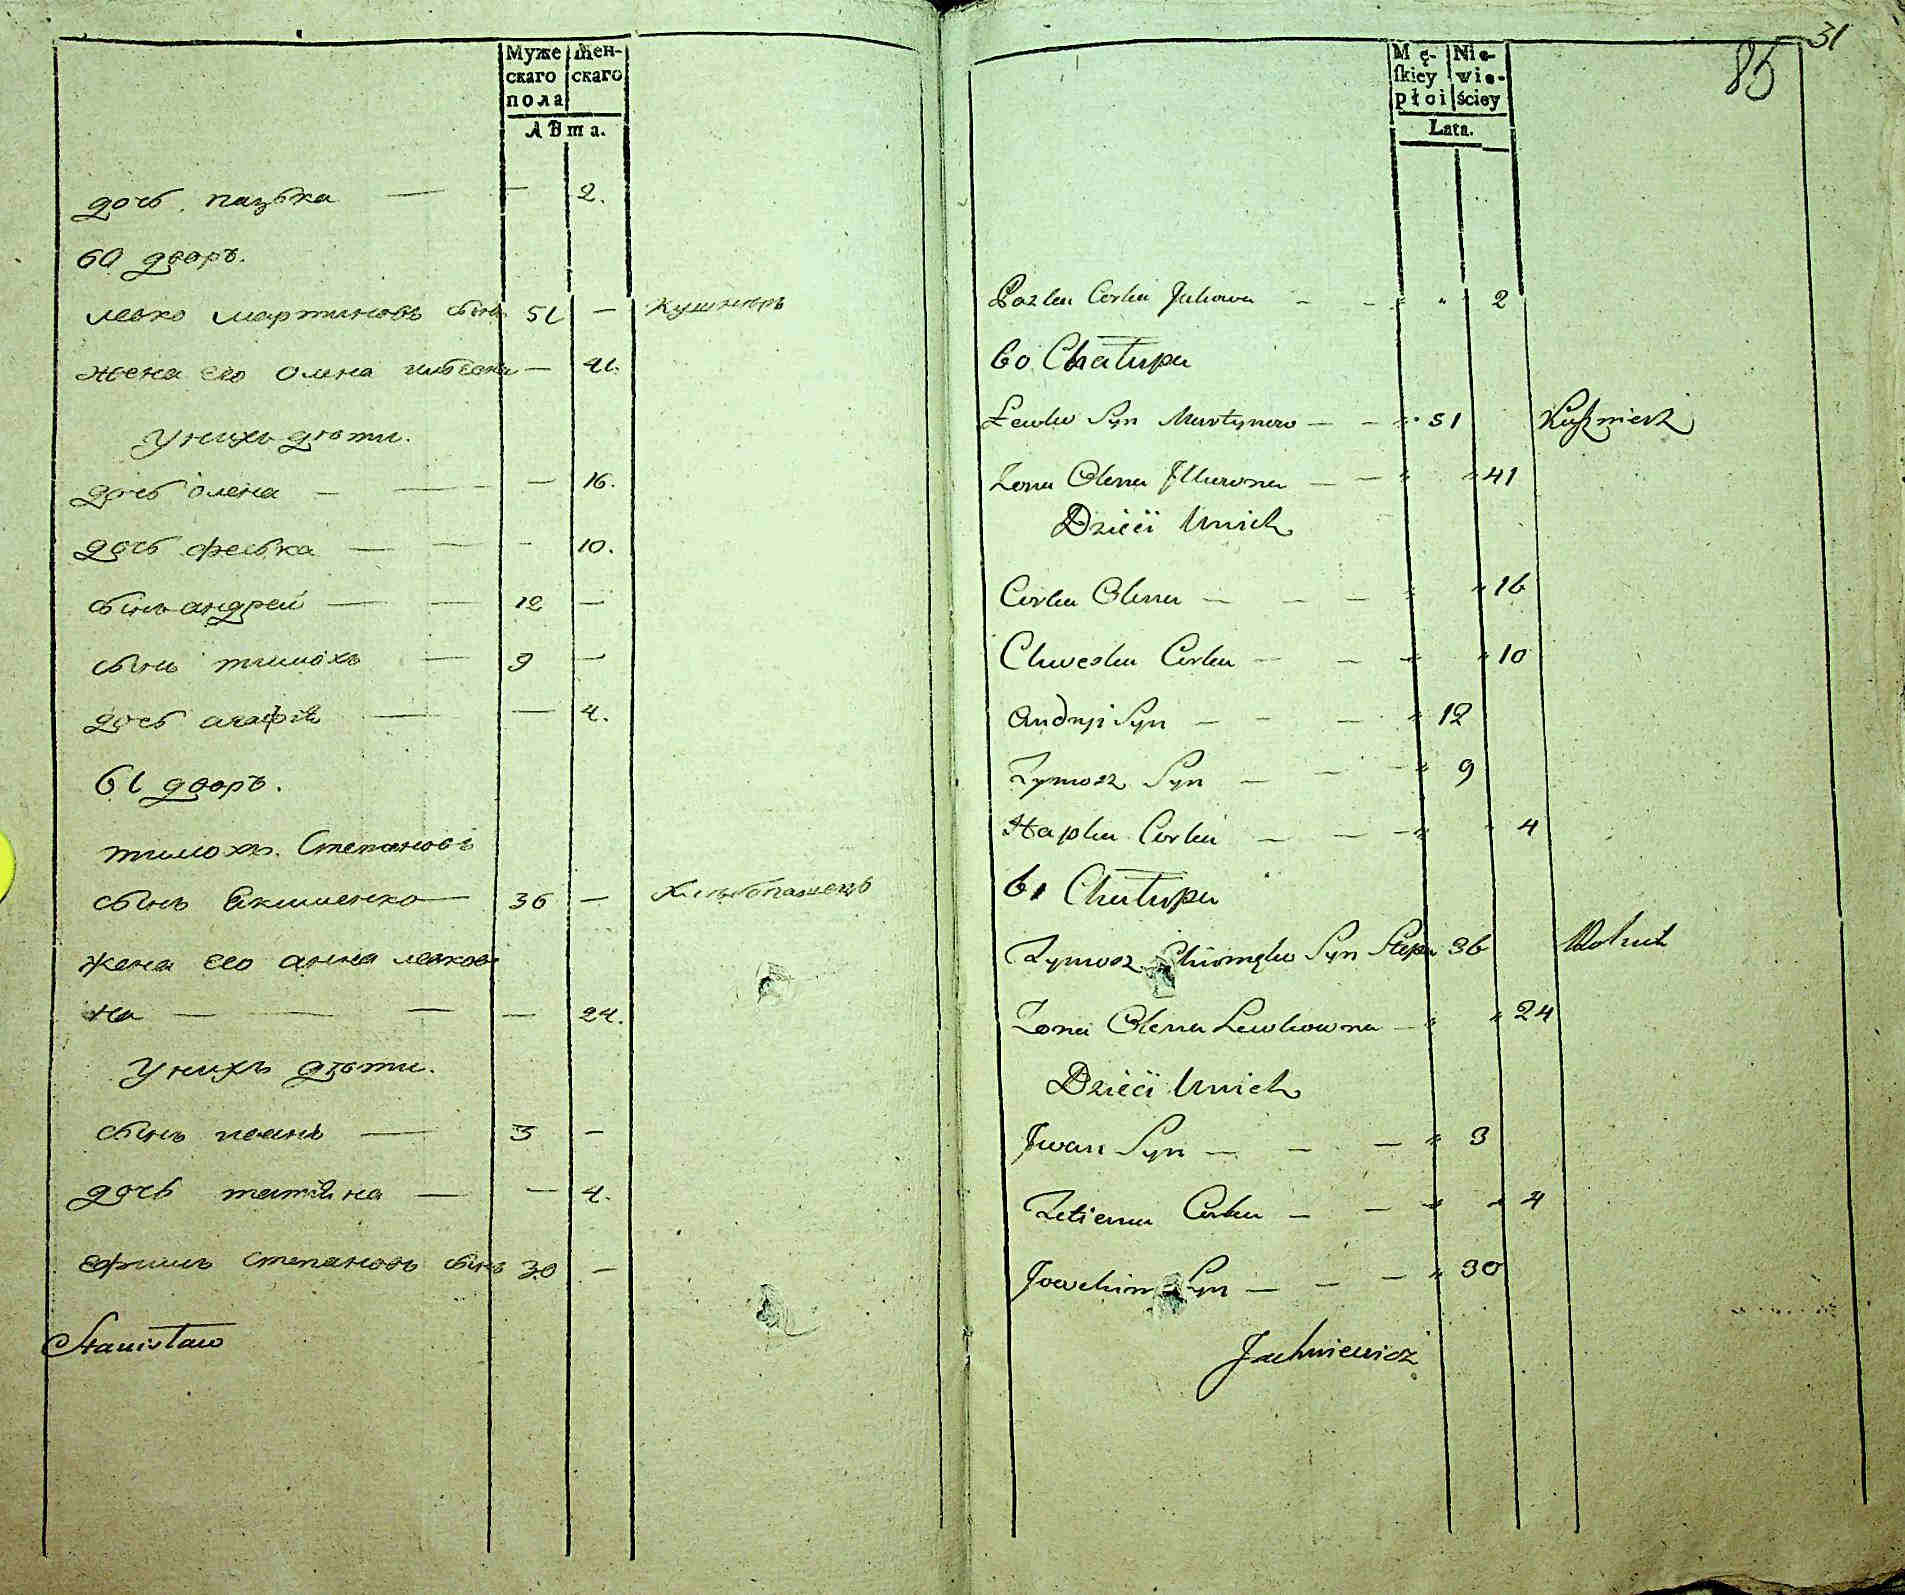 Муже Жен-
скаго скаго
пола
лѣта.
дочь пазька — — 2.
60 дворъ.
левко мартиновъ сынъ 51 — кушнѣръ
жена его олена — 41.
У нихъ дѣти.
дочь олена — — — 16.
дочь феська — — — 10.
сынъ андрей — — 12 —
сынъ тимохъ — 9 —
дочь агафiя — — 4.
61 дворъ.
тимохъ Степановъ
сынъ Якименко — 36 — хлѣбопашецъ
жена его анна левков
на — — — — 24.
У нихъ дѣти.
сынъ иванъ — 3 —
дочь татiяна — — 4.
ефимъ степановъ сынъ 30 —
Stanisław
31
85
Mę- Nie-
ſkiey wie-
płci ściey
Lata.
Pazka Corka — — " " 2
60 Chałupa
Lewko Syn Martynow — — " 51 Kuſznierz
Zona Olena — — " " 41
Dzieci Unich
Corka Olena — — — " " 16
Chweska Corka — — " " 10
Andryi Syn — — — " 12
Tymosz Syn — — — " 9
Hapka Corka — — — " " 4
61 Chałupa
Tymosz Syn Stepa 36 Rolnik
Zona Olena Lewkowna — " " 24
Dzieci Unich
Iwan Syn — — — " 3
Tetiena Corka — — " " 4
Joachim Syn — — — " 30
Jachniewicz